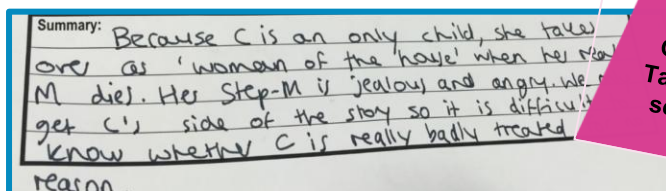 Summary: Because C is an only child, she takes
over as 'woman of the house' when her real
M dies. Her Step-M is jealous and angry. We
get C's side of the story so it is difficult
know whether C is really badly treated
reason